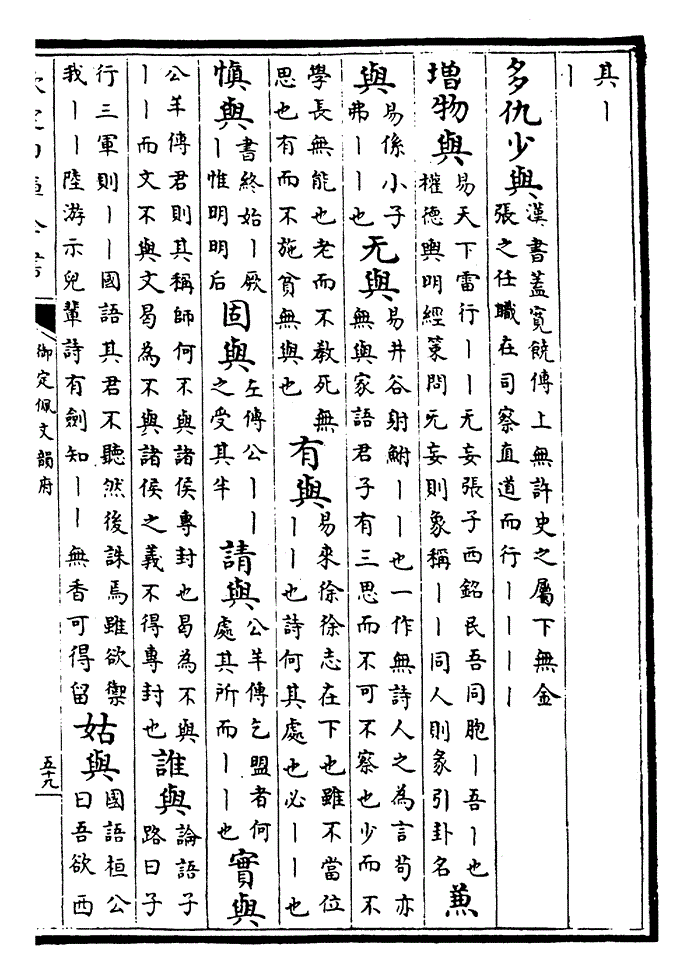 其丨
丨
多仇少與 漢書蓋寬饒傳上無許史之屬下無金張之任職在司察直道而行丨丨丨丨
增物與 易天下雷行丨丨无妄張子西銘民吾同胞丨吾丨也權德輿明經策問无妄則象稱丨丨同人則彖引卦名 兼
與 易係小子弗丨丨也 无與 易井谷射鮒丨丨也一作無詩人之為言苟亦無與家語君子有三思而不可不察也少而不
學長無能也老而不教死無思也有而不施貧無與也 有與 易來徐徐志在下也雖不當位丨丨也詩何其處也必丨丨也
慎與 書終始丨厥丨惟明明后 固與 左傳公丨丨之受其半 請與 公羊傳乞盟者何處其所而丨丨也 實與
公羊傳君則其稱師何不與諸侯專封也曷為不與丨丨而文不與文曷為不與諸侯之義不得專封也 誰與 論語子路曰子
行三軍則丨丨國語其君不聽然後誅焉雖欲禦我丨丨陸游示兒輩詩有劍知丨丨無香可得留 姑與 國語桓公曰吾欲西
欽定四庫全書
御定佩文韻府
五十九